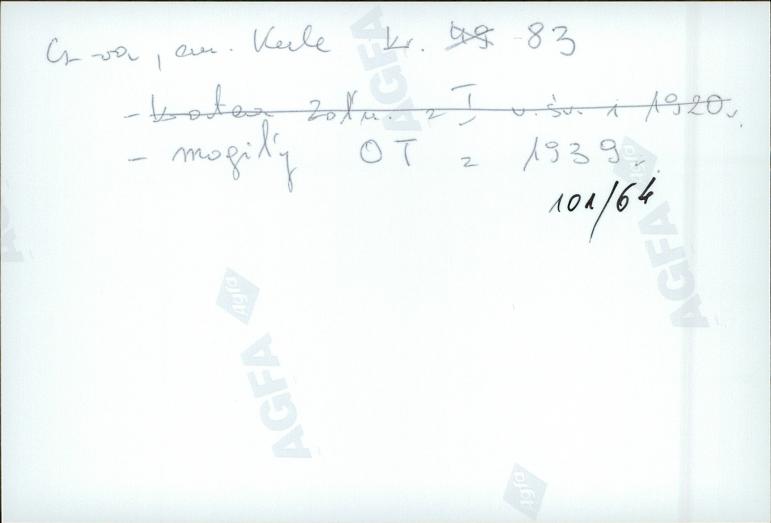 Cz-wa, cm. Kule kr. 49 83
- kwatera żołn. z I w. św. i 1920 r.
- mogiły OT z 1939 r.
101/64
AGFA
AGFA
Agfa
AGFA
Agfa
AGFA
Agfa